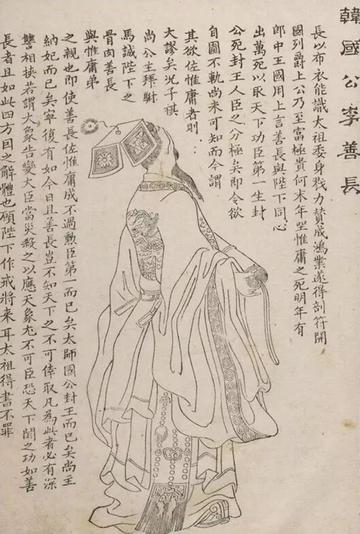 韓國公李善長
長以布衣能識太祖委身戮力贊成鴻業遂得剖符開
國列爵上公乃至富極貴何末年坐惟庸之死明年有
郎中王國用上言善長與陛下同心
出萬死以取天下功臣第一生封
公死封王人臣之分極矣即令欲
自圖不軌尚未可知而今謂
其欲佐惟庸者則
大謬矣況子祺
尚公主拜駙
馬誠陛下之
骨肉善長
與惟庸弟
之親也即使善長佐惟庸成不過勲臣第一而已矣太師國公封王而已矣尚主
納妃而已矣寧復有如今日且善長豈不知天下之不可倖取凡為此者必有深
讐相挾若謂大象告變大臣當災殺之以應天象尤不可臣恐天下聞之功如善
長者且如此四方因之解體也願陛下作戒將來耳太祖得書不罪